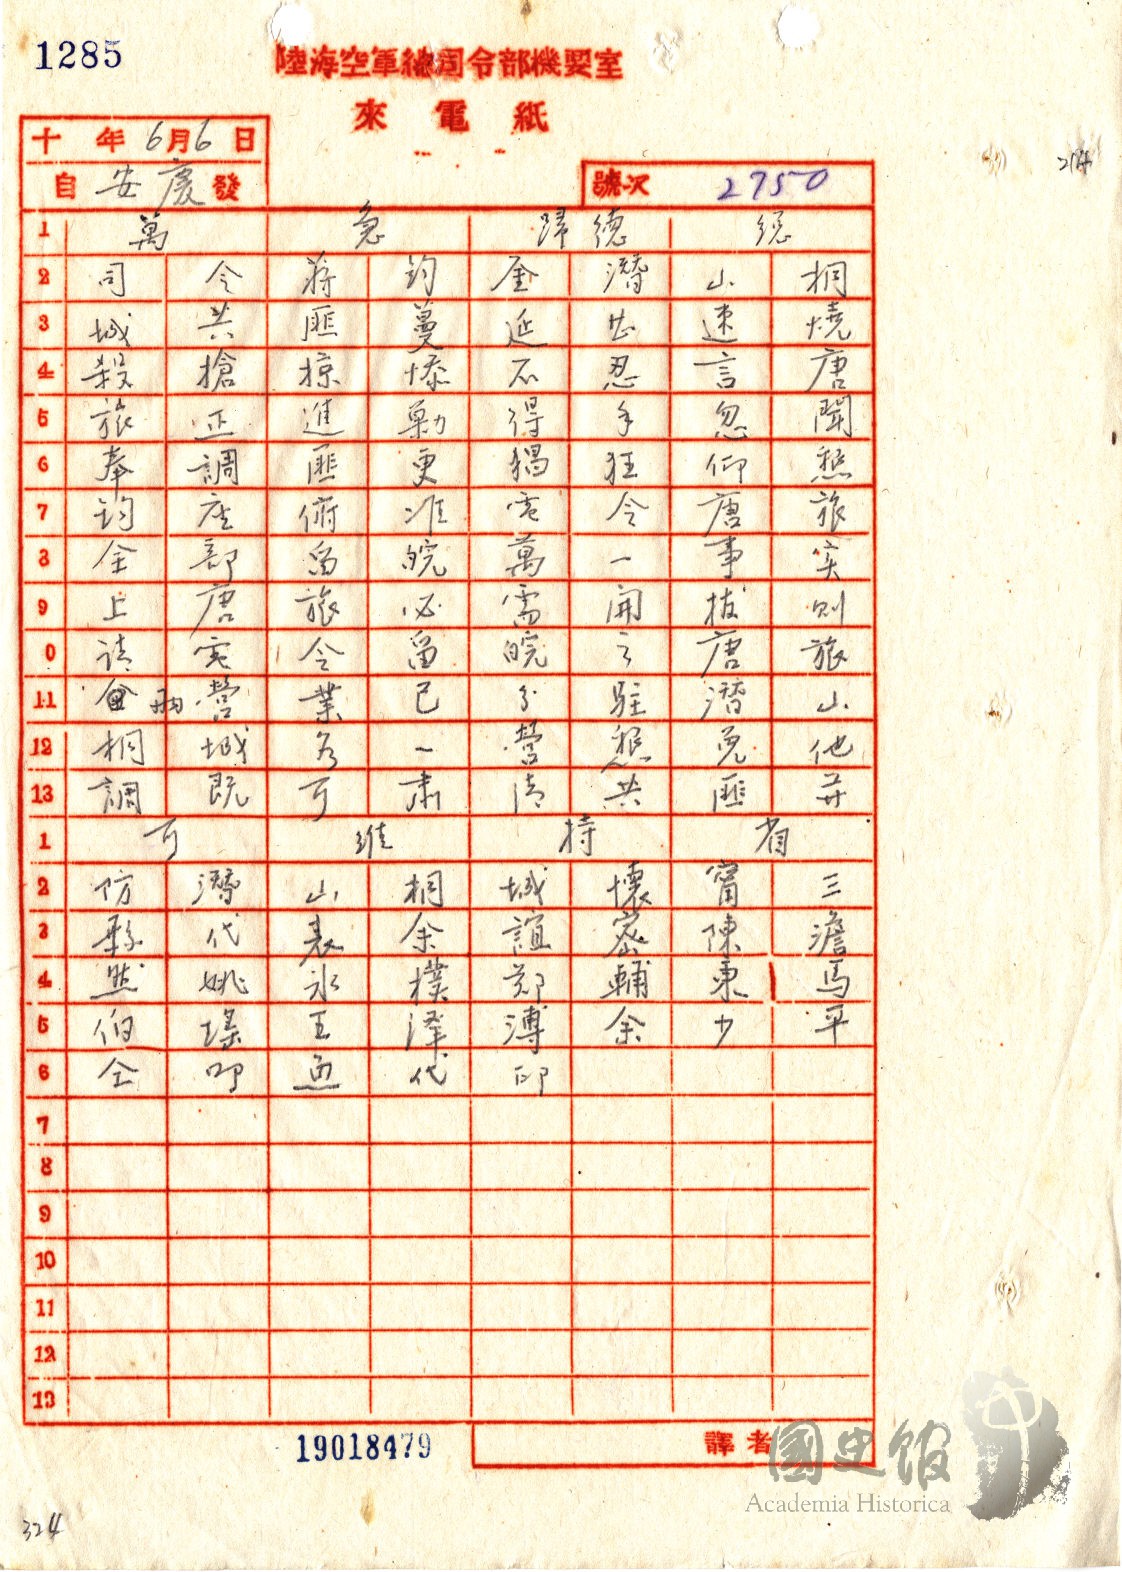 1285
陸海空軍總司令部機要室
來電紙
十 年 6月6日
自 安慶 發
號次 2750
214
1 萬 急 歸德 總
2 司 令 蔣 鈞 座 潛 山 桐
3 城 共 匪 蔓 延 甚 速 燒
4 殺 搶 掠 慘 不 忍 言 唐
5 旅 正 進 勦 得 手 忽 聞
6 奉 調 匪 更 猖 狂 仰 懇
7 鈞 座 俯 准 電 令 唐 旅
8 全 部 留 皖 萬 一 事 实
9 上 唐 旅 必 需 開 拔 則
0 請 電 令 留 皖 之 唐 旅
11 兩 營 業 已 分 駐 潛 山
12 桐 城 各 一 營 懇 免 他
13 調 既 可 肅 清 共 匪 并
1 可 維 持 省
2 防 潛 山 桐 城 懷 甯 三
3 縣 代 表 余 誼 密 陳 澹
4 然 姚 永 樸 鄭 輔 東 馬
5 伯 瑤 王 澤 溥 余 少 平
6 仝 叩 魚 代 印
7
8
9
10
11
12
13
19018479
譯者
國史館
Academia Historica
324